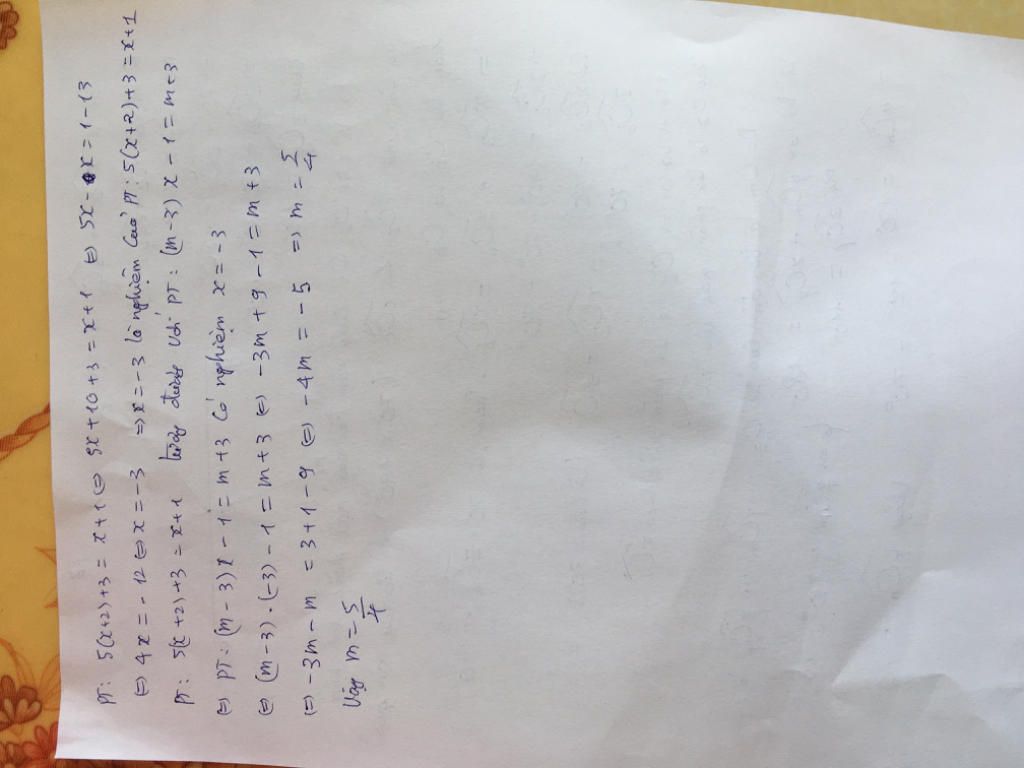 PT: 5(x+2)+3 = x+1 ⇔ 5x+10+3 = x+1 ⇔ 5x - x = 1-13
⇔ 4x = -12 ⇔ x = -3 ⇒ x = -3 là nghiệm của PT: 5(x+2)+3 = x+1
PT: 5(x+2)+3 = x+1 tương đương với PT: (m-3)x - 1 = m+3
⇔ PT: (m-3)x - 1 = m+3 có nghiệm x = -3
⇔ (m-3).(-3) - 1 = m+3 ⇔ -3m + 9 - 1 = m+3
⇔ -3m - m = 3+1-9 ⇔ -4m = -5 ⇒ m = 5/4
Vậy m = 5/4